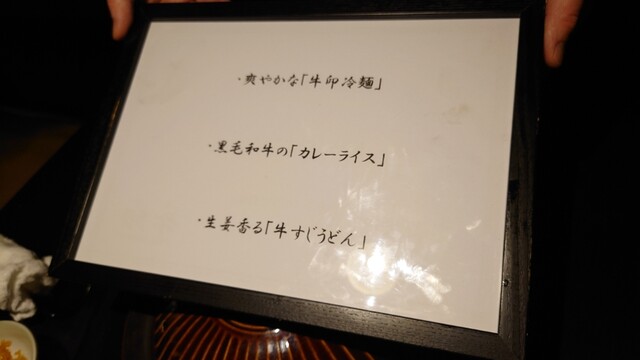 ・爽やかな「牛卯冷麺」
・黒毛和牛の「カレーライス」
・生姜香る「牛すじうどん」